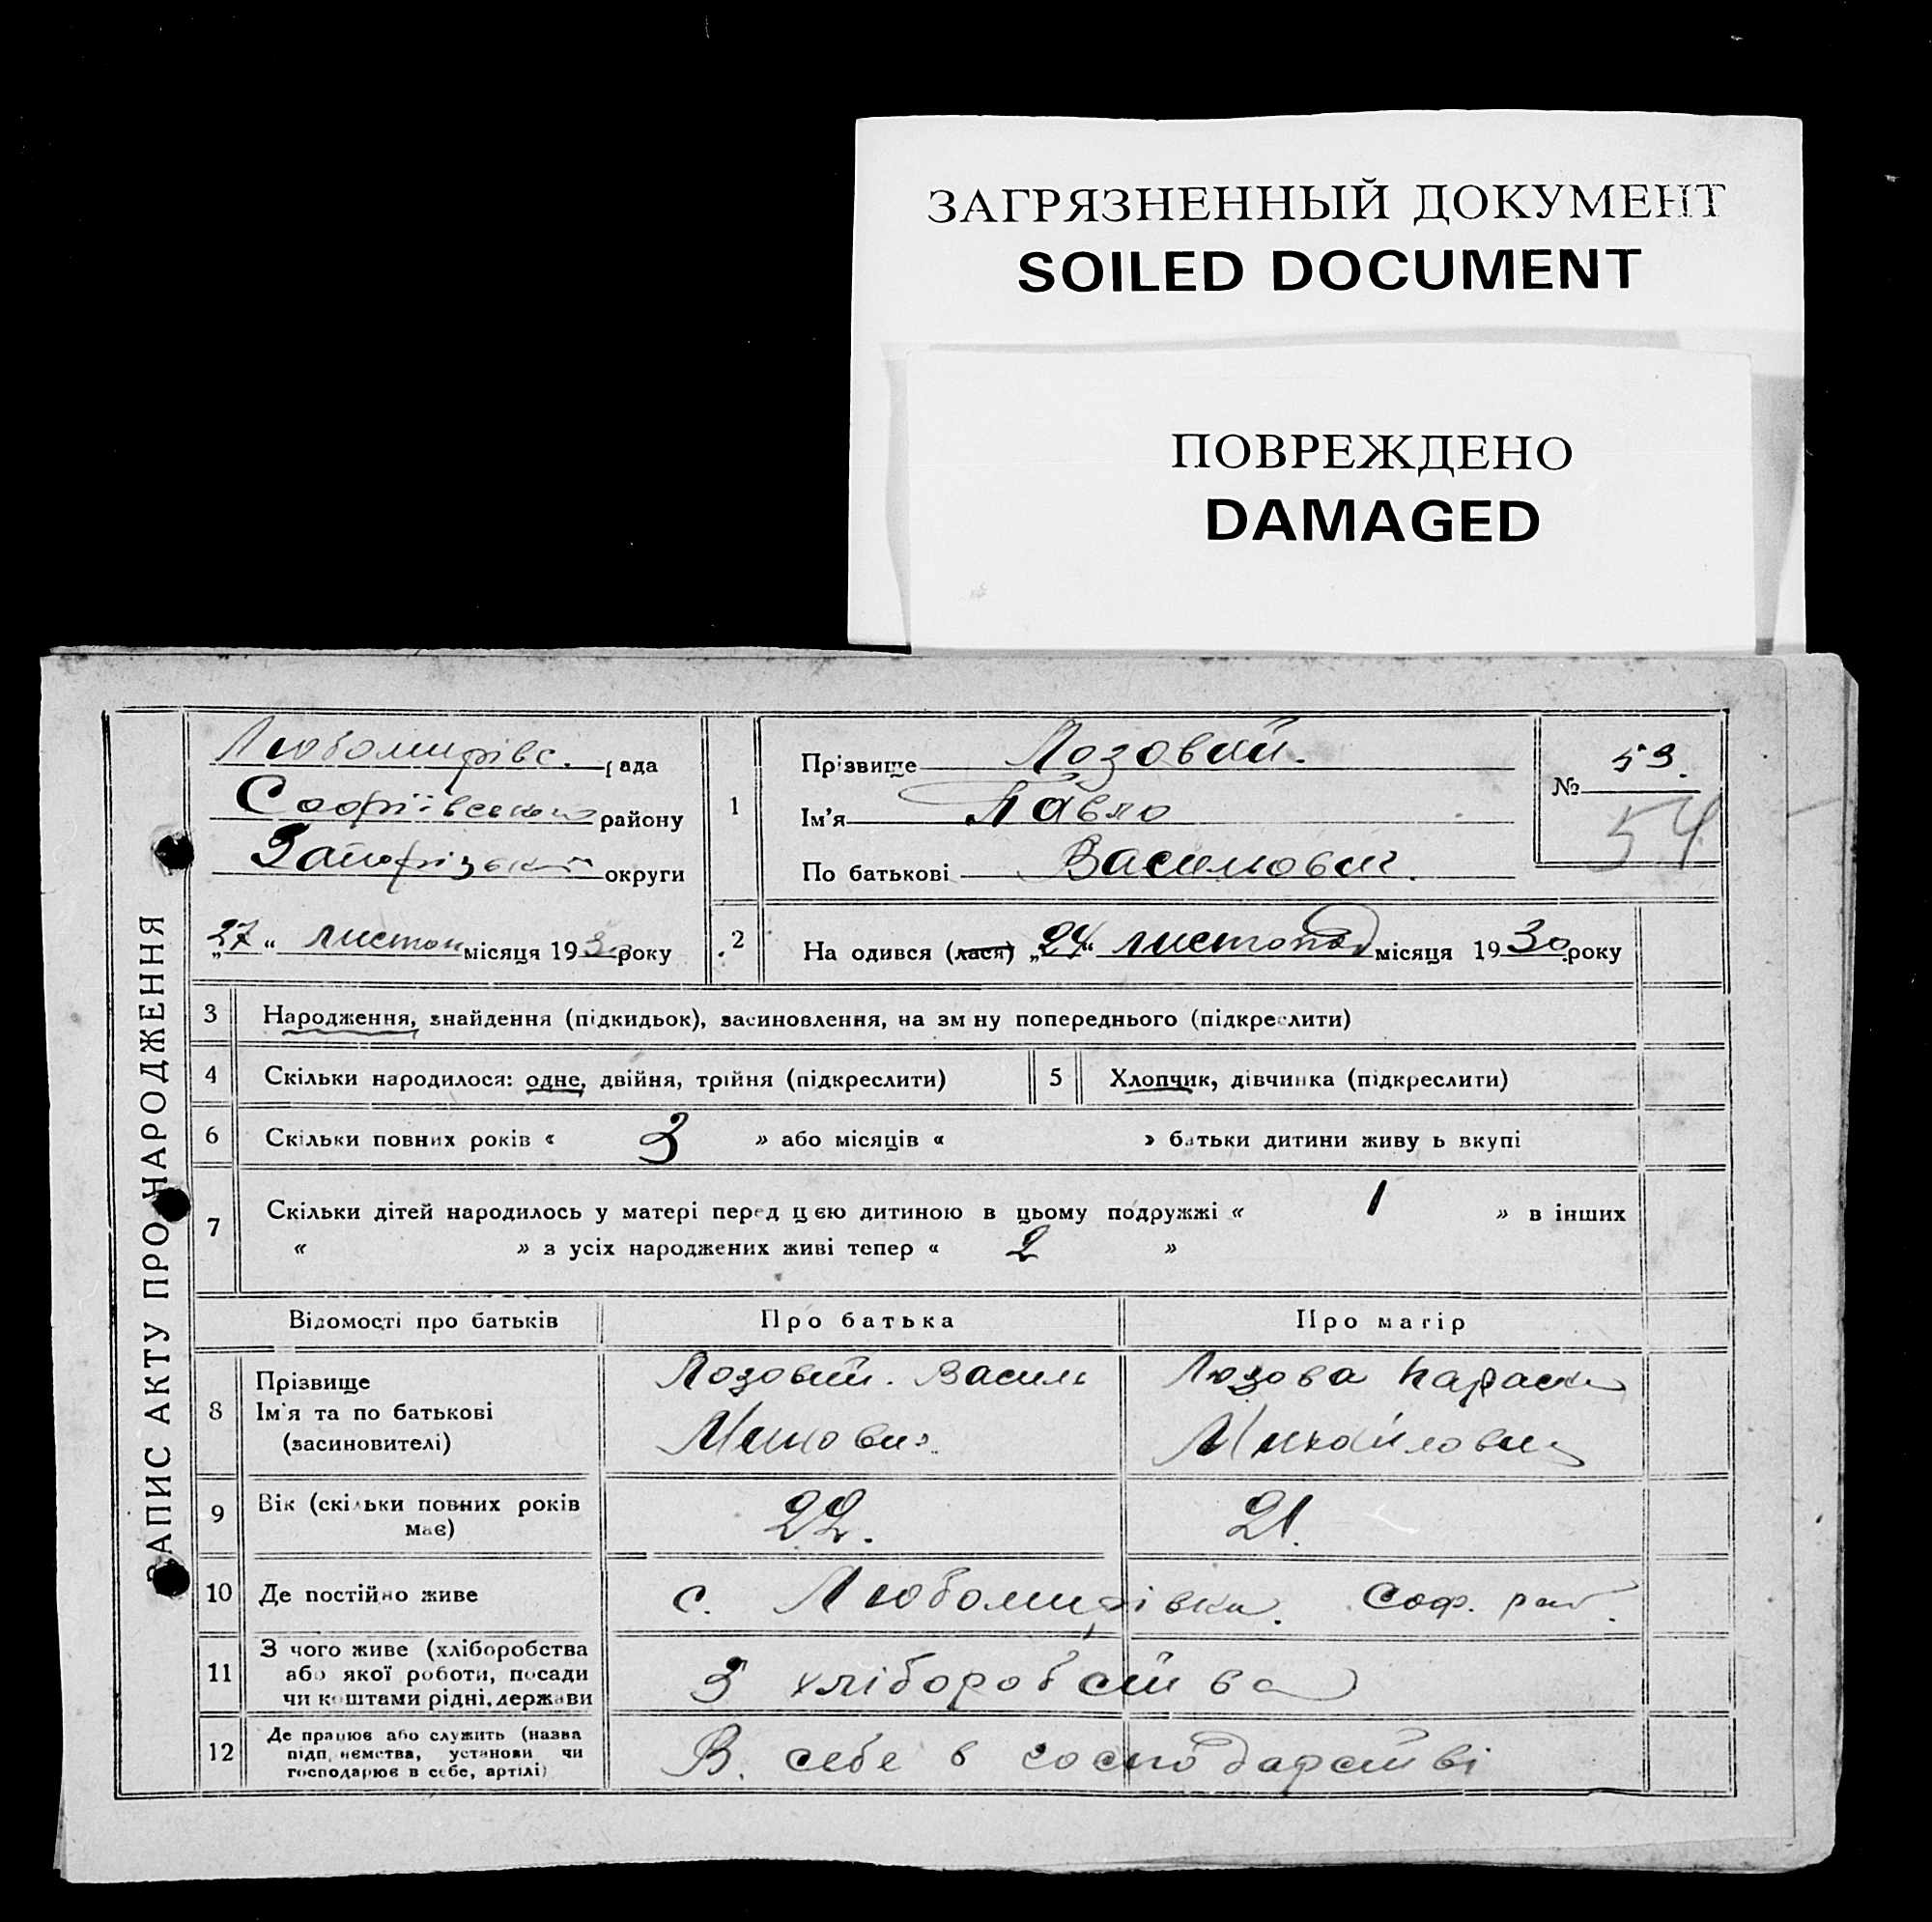 ЗАГРЯЗНЕННЫЙ ДОКУМЕНТ
SOILED DOCUMENT
ПОВРЕЖДЕНО
DAMAGED
ЗАПИС АКТУ ПРО НАРОДЖЕННЯ
Любомирівс. рада
Софіївського району
Запорізької округи
„27“ листоп місяця 1930 року
1
Прізвище Лозовий.
Ім'я Павло
По батькові Васильович.
№ 53.
54
2
На одився (лася) „24“ листопад місяця 1930 року
3 Народження, знайдення (підкидьок), засиновлення, на зм ну попереднього (підкреслити)
4 Скільки народилося: одне, двійня, трійня (підкреслити) 5 Хлопчик, дівчинка (підкреслити)
6 Скільки повних років « 3 » або місяців « » батьки дитини живу ь вкупі
7 Скільки дітей народилось у матері перед цією дитиною в цьому подружжі « 1 » в інших
« » з усіх народжених живі тепер « 2 »
Відомості про батьків Про батька Про матір
8 Прізвище
Ім'я та по батькові
(засиновителі)
Лозовий. Василь
Минович.
Лозова Параска
Михайловна
9 Вік (скільки повних років
має)
22. 21.
10 Де постійно живе с. Любомирівка. Соф. рай.
11 З чого живе (хліборобства
або якої роботи, посади
чи коштами рідні, держави
З хліборобства
12 Де працює або служить (назва
підп иємства, установи чи
господарює в себе, артілі)
В. себе в господарстві